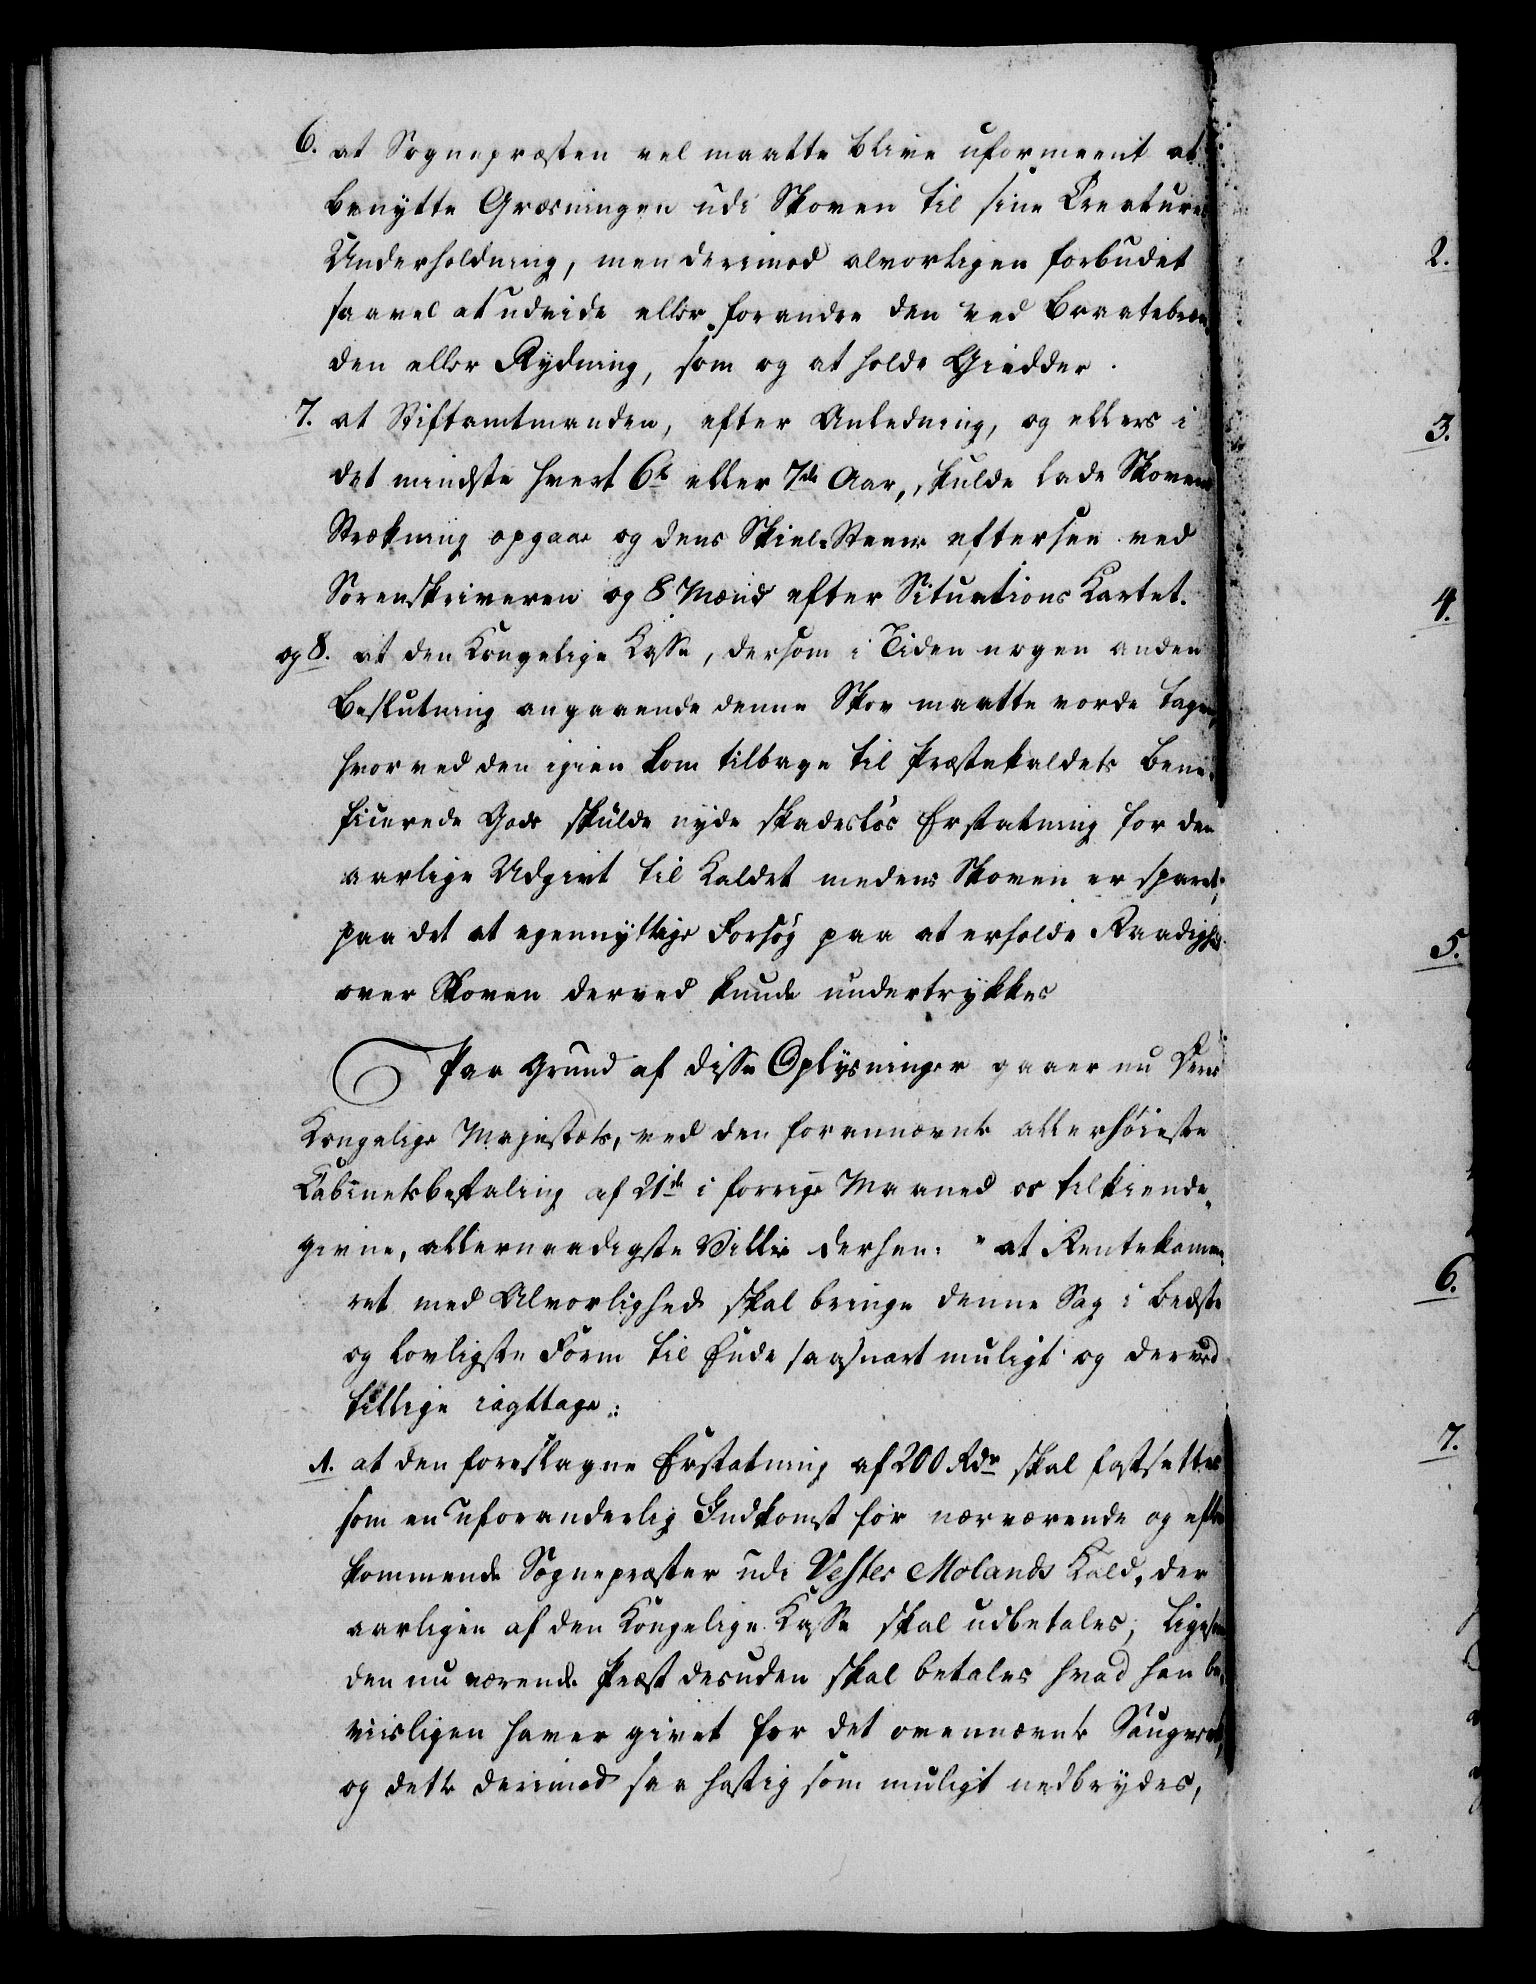 6. at Sognepræsten vel maatte blive uformeent at
benytte Græsningen udi Skoven til sine Creaturers
Underholdning, men derimod alvorligen forbudet
saavel at udvide eller forandre den ved Braatebræn-
den eller Rydning, som og at holde Giedder.
7. at Stiftamtmanden, efter Anledning, og ellers i
det mindste hvert 6te eller 7de Aar, skulde lade Skovens
Strækning opgaae og dens Skiel-Steene eftersee ved
Sorenskriveren og 8 Mænd efter Situations Kartet.
og 8. at den Kongelige Kasse, dersom i Tiden nogen anden
Beslutning angaaende denne Skov maatte vorde tagen,
hvorved den igien kom tilbage til Præstekaldets bene-
ficerede Gods skulde nyde skadesløs Erstatning for den
aarlige Udgivt til Kaldet medens Skoven er sparet,
paa det at egennyttige Forsøg paa at erholde Raadighed
over Skoven derved kunde undertrykkes
Paa Grund af disse Oplysninger gaaer nu Deres
Kongelige Majestæts, ved den forannævnte allerhøieste
Cabinetsbefaling af 21de i forrige Maaned os tilkiende-
givne, allernaadigste Villie derhen: "at Rentekamme-
ret med Alvorlighed skal bringe denne Sag i bedste
og lovligste Form til Ende saasnart muligt og derved
tillige iagttage:
1. at den foreslagne Erstatning af 200 Rdr skal fastsættes
som en uforanderlig Indkomst for nærværende og efter-
kommende Sognepræster udi Vester Molands Kald, der
aarligen af den Kongelige Kasse skal udbetales; ligesom
den nuværende Præst desuden skal betales hvad han be-
viisligen haver givet for det ovennævnte Saugverk,
og dette derimod saa hastig som muligt nedbrydes,
2.
3.
4.
5.
6.
7.